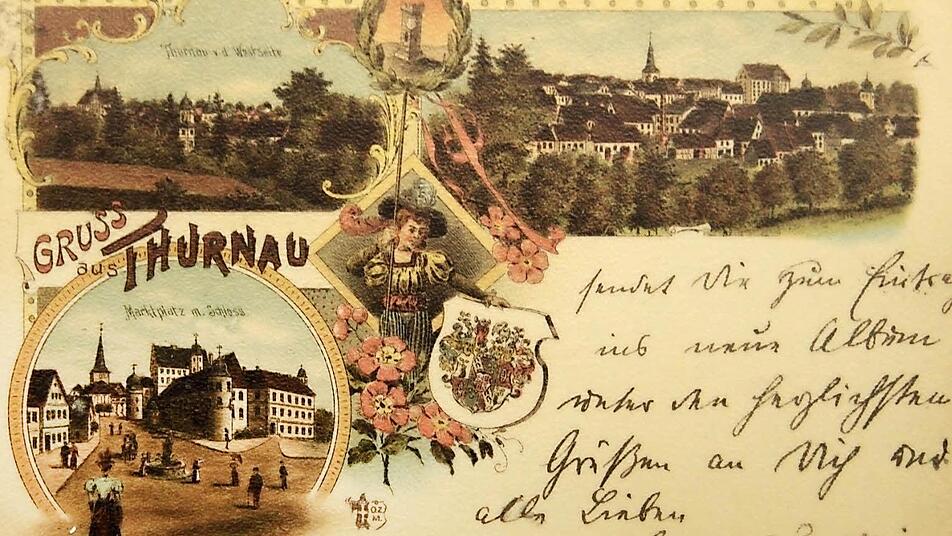 Thurnau v. d. Westseite
GRUSS
aus THURNAU
Marktplatz m. Schloss
sendet Dir zum Eintrag
ins neue Album
unter den herzlichsten
Grüßen an Dich und
alle Lieben